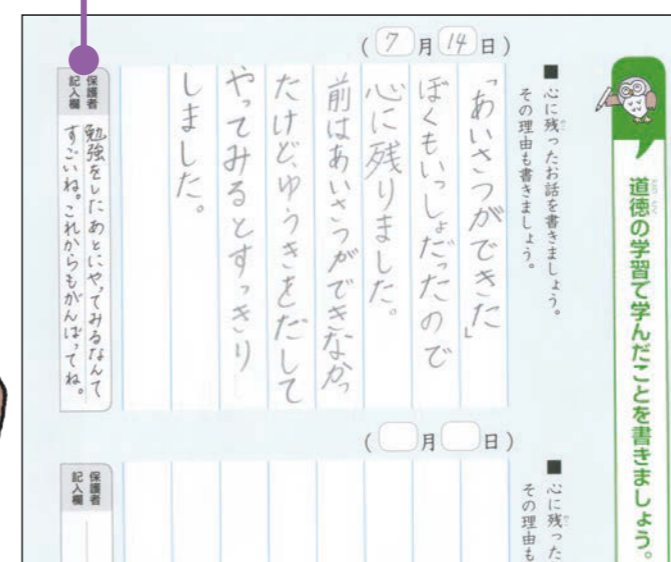 道徳の学習で学んだことを書きましょう。
■心に残ったお話を書きましょう。
その理由も書きましょう。
(7月14日)
「あいさつができた」
ぼくもいっしょだったので
心に残りました。
前はあいさつができなかっ
たけど、ゆうきをだして
やってみるとすっきり
しました。
保護者
記入欄
勉強をしたあとにやってみるなんて
すごいね。これからもがんばってね。
■心に残った
その理由も
(月日)
保護者
記入欄